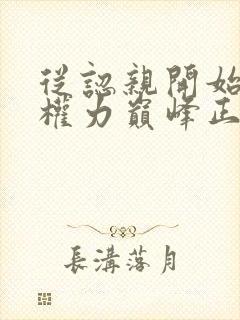 從認親開始
權力巔峰正
長溝落月